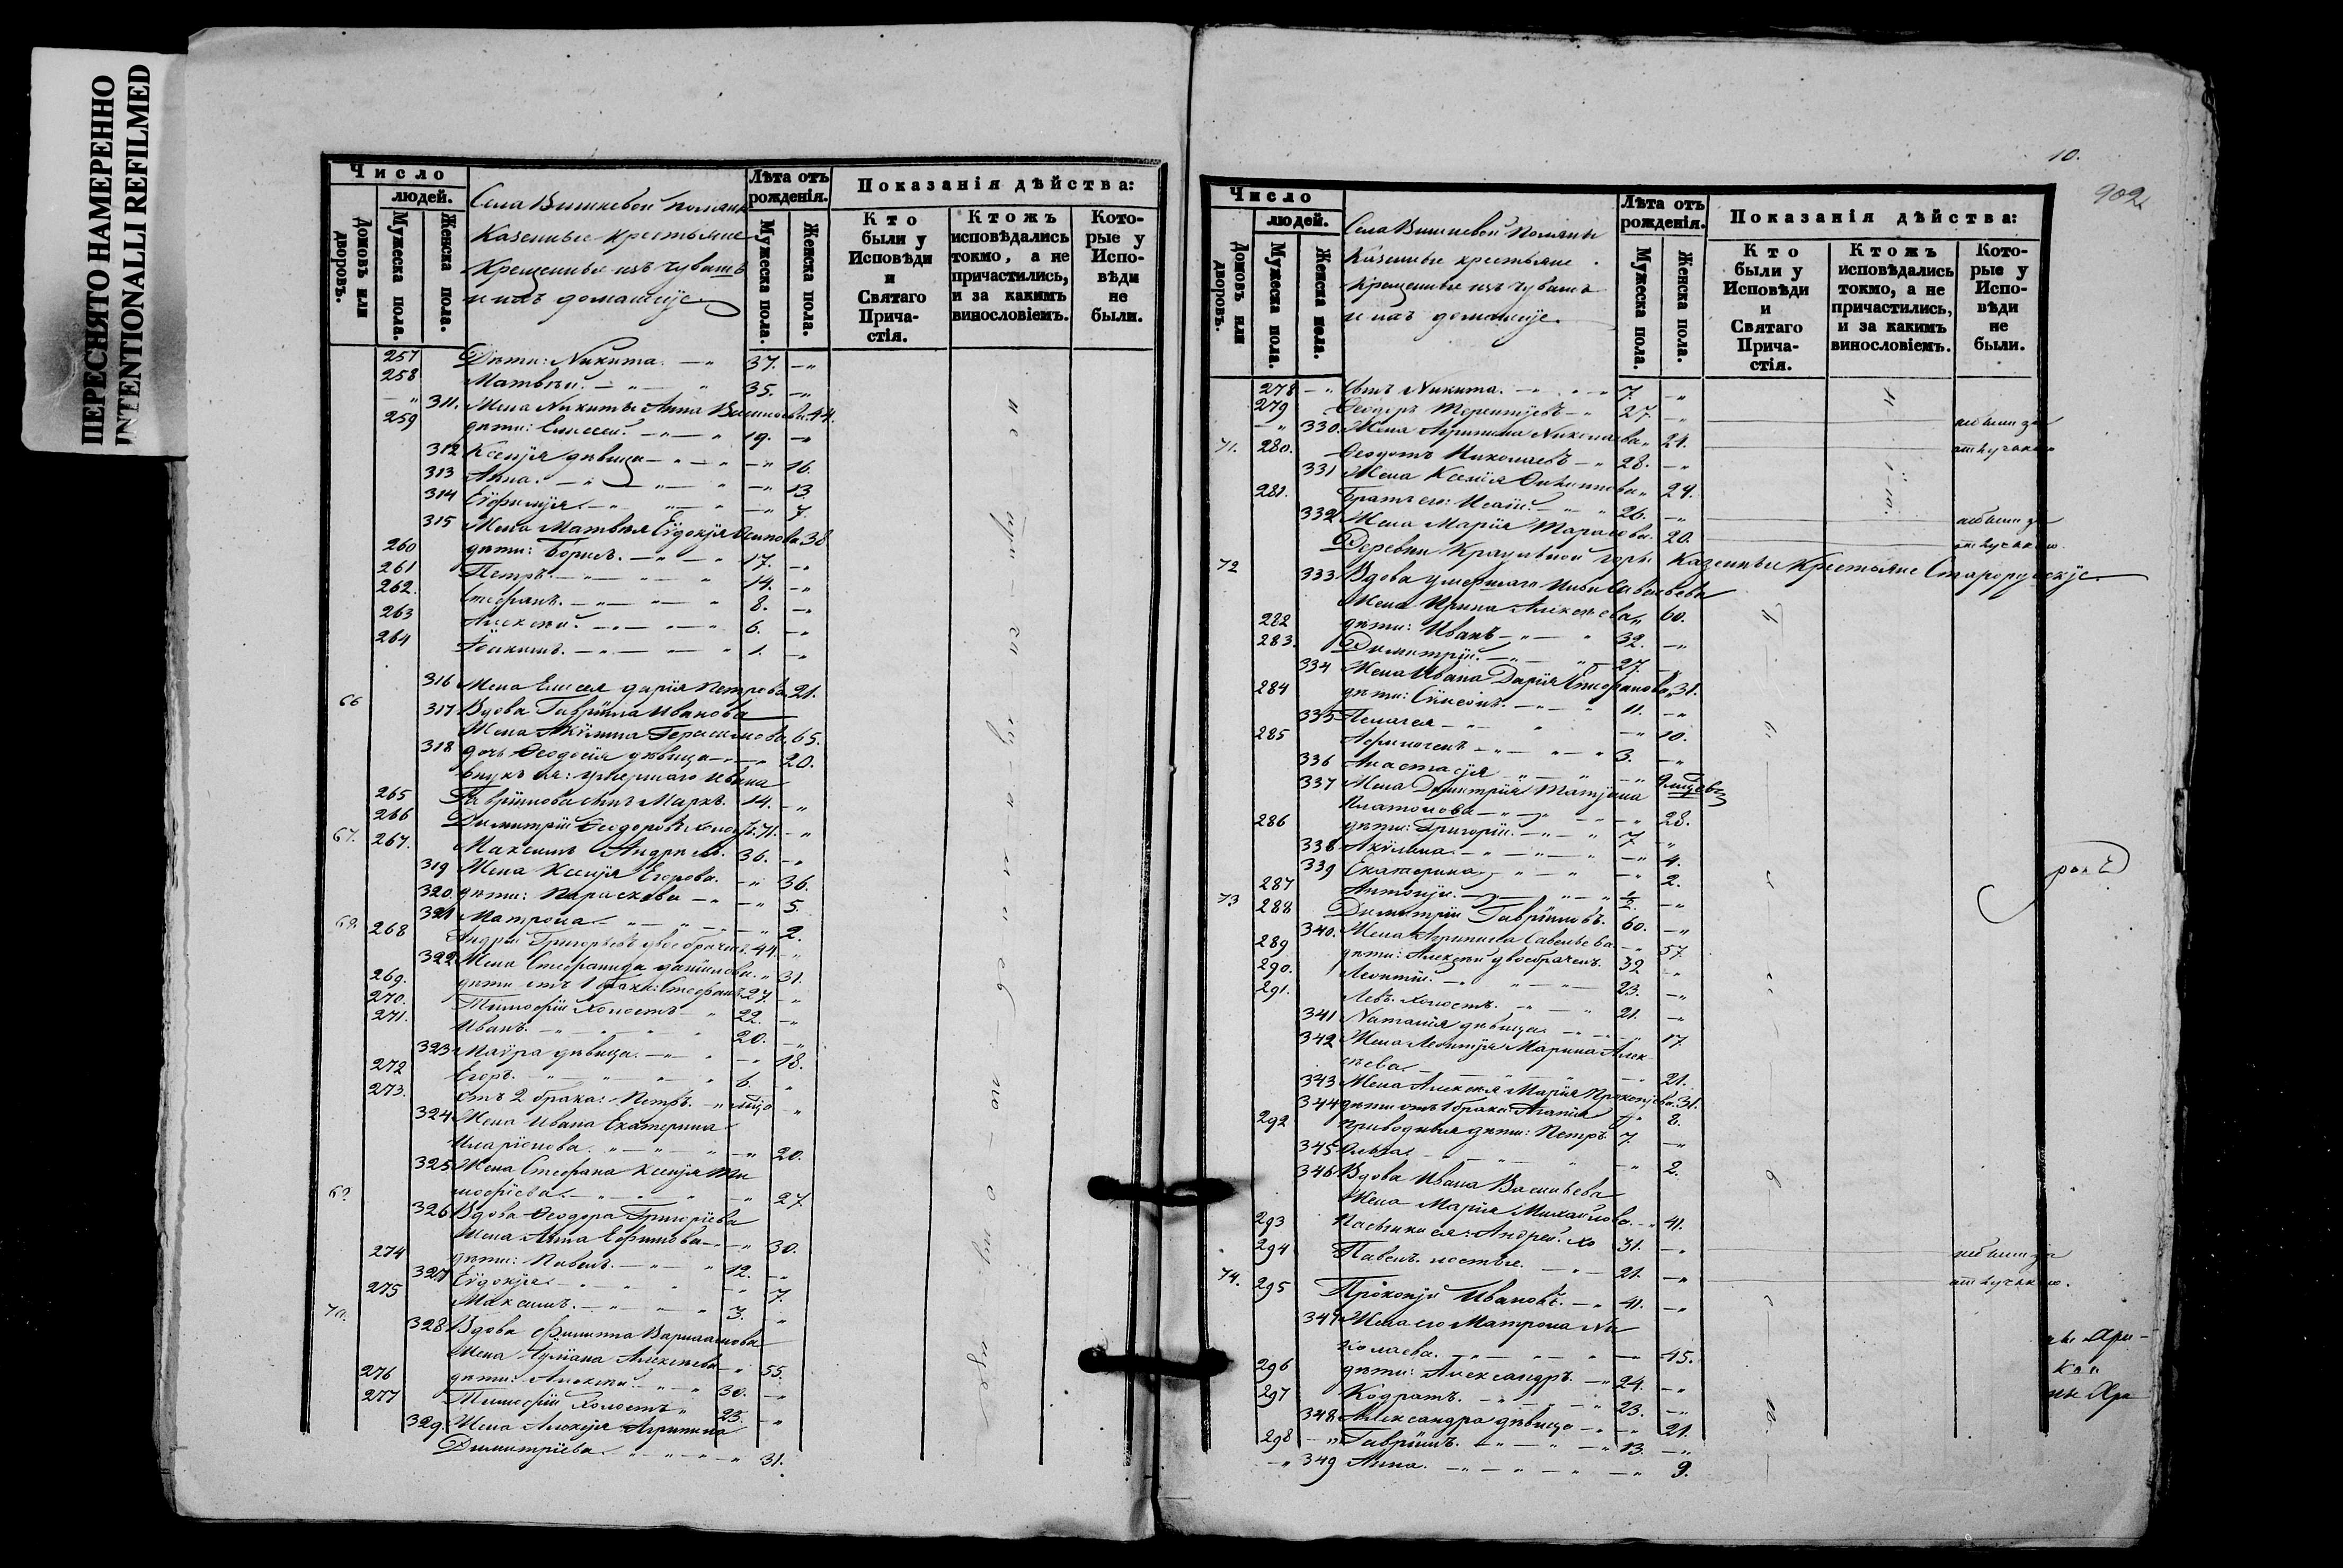 ПЕРЕСНЯТО НАМЕРЕННО
INTENTIONALLI REFILMED
Число
людей.
Домовъ или дворовъ.
Мужеска пола.
Женска пола.
Села Вишневой Поляны
Казенные крестьяне
Крещенные изъ Чувашъ
и ихъ домашніе
Лѣта отъ рожденія.
Мужеска пола.
Женска пола.
Показанія дѣйства:
Кто были у Исповѣди и Святаго Причастія.
Ктожъ исповѣдались токмо, а не причастились, и за какимъ винословіемъ.
Которые у Исповѣди не были.
257 Дѣти: Никита. 37.
258 Матвѣй. 35.
311. Жена Никиты Анна 44.
259 дѣти: Елисей. 19.
312 Ксенія дѣвица 16.
313 Анна. 13
314 Евфимія 7.
315 Жена Матвѣя Еѵдокія Осипова 38
260 дѣти: Борисъ. 17.
261 Петръ. 14.
262. Стефанъ. 8.
263 Алексѣй. 6.
264 1.
316 Жена Елисея Дарія Петрова 21.
66
317 Вдова Гавріила Иванова
Жена Акилина Герасимова 65.
318 дочь Ѳеодосія дѣвица 20.
Внукъ ея: умершаго Ивана
265 Гавріилова сынъ Марко. 14.
266 Димитрій Ѳеодоровъ холостъ 71.
67. 267. Максимъ Андреевъ. 36.
319 Жена Ксенія Егорова. 36.
320. дѣти: Параскева 5.
321 Матрона 2.
68. 268 Андрей Григорьевъ двоебрачен. 44.
322 Жена Стефанида Данилова. 31.
269. дѣти отъ 1 брака: Стефанъ 27.
270. Тимофій холостъ 22.
271. Иванъ. 20.
323 Мавра дѣвица. 18.
272 Егоръ. 6.
273. Отъ 2 брака: Петръ.
324 Жена Ивана Екатерина
Иларіонова. 20.
325 Жена Стефана Ксенія Ти
мофіева 27.
69.
326 Вдова Ѳеодора Григоріева
Жена Анна Ефимова 30.
274 дѣти: Павелъ. 12.
327 Еѵдокія 7.
275 Максимъ. 3.
70.
328 Вдова Филиппа Варлаамова
Жена Іуліана Алексѣева 55.
276 дѣти: Алексѣй. 30.
277 Тимофій холостъ 23.
329. Жена Алексія Агрипина
Димитріева 31.
10.
902
Число
людей.
Домовъ или дворовъ.
Мужеска пола.
Женска пола.
Села Вишневой Поляны
Казенные крестьяне
Крещенные изъ Чувашъ
и ихъ домашніе
Лѣта отъ рожденія.
Мужеска пола.
Женска пола.
Показанія дѣйства:
Кто были у Исповѣди и Святаго Причастія.
Ктожъ исповѣдались токмо, а не причастились, и за какимъ винословіемъ.
Которые у Исповѣди не были.
278 Сынъ Никита. 7.
279 Ѳеодоръ Терентіевъ 27.
330. Жена Агрипина Николаева 24. не были за
71. 280. Ѳеодотъ Николаевъ 28. отлучкою
331 Жена Ксенія 24.
281. Братъ его: Исаій. 26.
332 Жена Марія Тарасова. 20. не были за
отлучкою.
Деревни Караульной горы Казенные Крестьяне Старорусскіе
72
333 Вдова умершаго Савельева
Жена Ирина Алексѣева 60.
282 дѣти: Иванъ 32.
283. Димитрій. 27.
334 Жена Ивана Дарія Стефанова 31.
284 дѣти: Сѵмеонъ. 11.
335 Пелагея 10.
285 Афиногенъ 3.
336 Анастасія
337 Жена Димитрія Татіана
Платонова 28.
286 дѣти: Григорій. 7
338 Акилина 4.
339 Екатерина 2.
287 Антоній.
73 288 Димитрій Гавріиловъ. 60.
340. Жена Агрипина Савельева 57
289 дѣти: Алексѣй двоебрачен. 32
290. Леонтій. 23.
291. Левъ. холостъ. 21.
341 Наталія дѣвица. 17
342 Жена Леонтія Марина Алек
сѣева 21.
343 Жена Алексѣя Марія Прокопіева 31.
344 дѣти отъ 1 брака: Агапія 8.
292 приводныя дѣти: Петръ. 7.
345 2.
346 Вдова Ивана Васильева
Жена Марія Михайлова. 41.
293 Пасынки ея: Андрей. хо 31.
294 Павелъ. лостые. 21. не были за
74. 295 Прокопій Ивановъ. 41. отлучкою.
347 Жена его Матрона Ни
колаева. 45.
296 дѣти: Александръ. 24.
297 Кодратъ. 23.
348 Александра дѣвица 21.
298 Гавріилъ. 13.
349 Анна. 9.